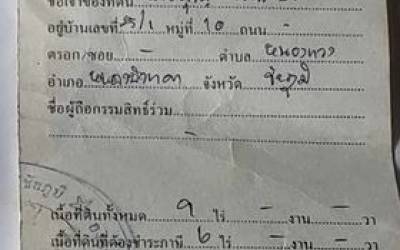 ชื่อเจ้าของที่ดิน
อยู่บ้านเลขที่ 5/1 หมู่ที่ 10 ถนน -
ตรอก/ซอย - ตำบล
อำเภอ จังหวัด ชัยภูมิ
ชื่อผู้ถือกรรมสิทธ์ร่วม
-
ชัยภูมิ
เนื้อที่ดินทั้งหมด 9 ไร่ - งาน - วา
เนื้อที่ดินที่ต้องชำระภาษี 6 ไร่ - งาน - วา